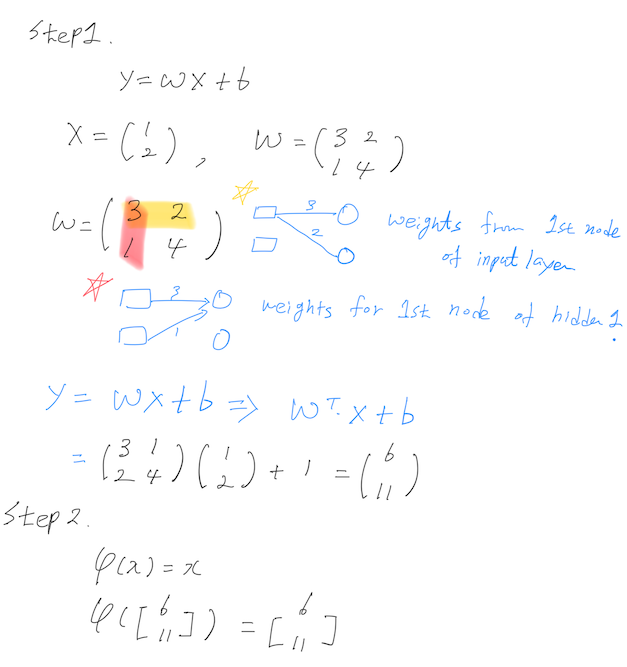 Step1.
y = wx + b
X = (1 2), W = (3 2 1 4)
W = (3 2 1 4)
3
2
weights from 1st node
of input layer
3
1
weights for 1st node of hidden 1.
y = wx + b ⇒ wᵀ·x + b
= (3 1 2 4)(1 2) + 1 = (6 11)
Step 2.
φ(x) = x
φ([6 11]) = [6 11]